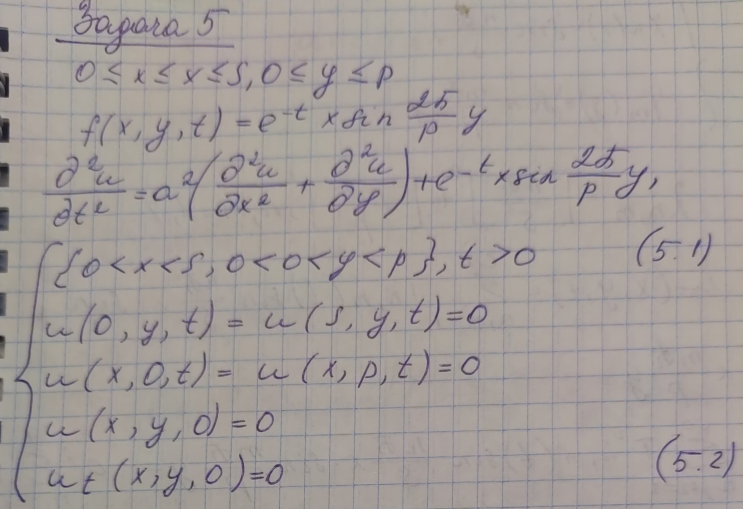 Задача 5
0 ≤ x ≤ x ≤ s, 0 ≤ y ≤ p
f(x, y, t) = e^{-t} x sin \frac{2π}{p} y
\frac{∂^2 u}{∂t^2} = a^2 (\frac{∂^2 u}{∂x^2} + \frac{∂^2 u}{∂y}) + e^{-t} x sin \frac{2π}{p} y,
{0 < x < s, 0 < 0 < y < p}, t > 0 (5.1)
u(0, y, t) = u(s, y, t) = 0
u(x, 0, t) = u(x, p, t) = 0
u(x, y, 0) = 0
u_t (x, y, 0) = 0 (5.2)